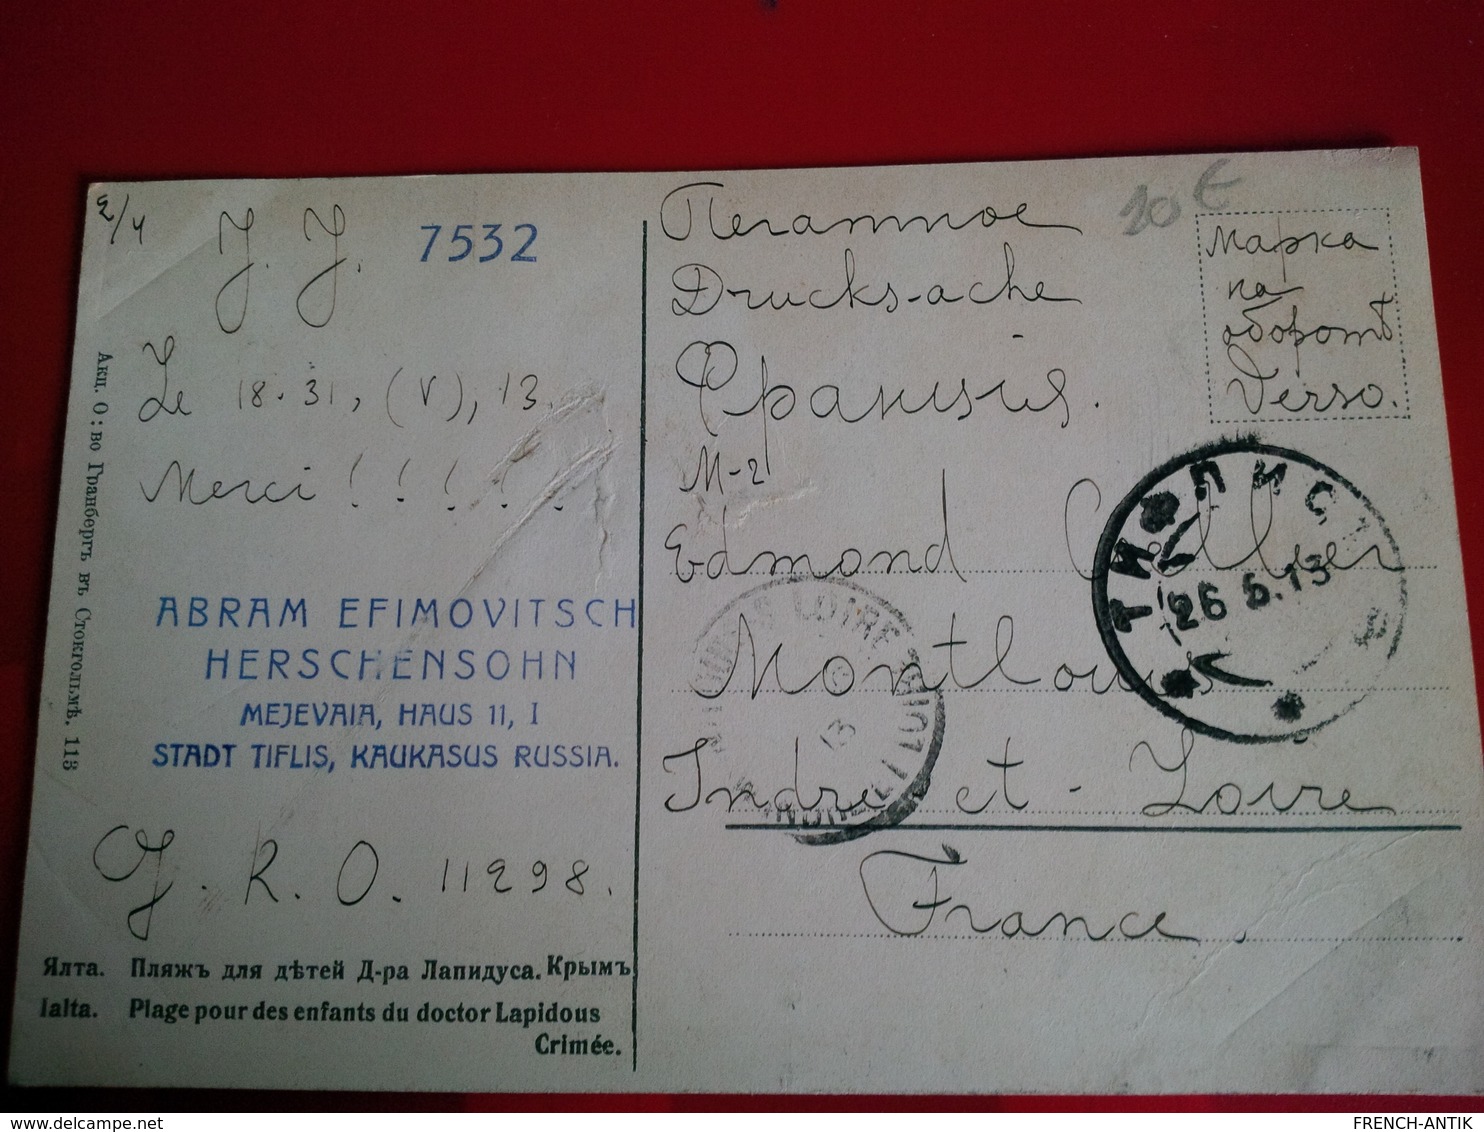 2/4
J. J. 7532
Le 18.31, (V), 13.
Merci ! ! ! ! !
ABRAM EFIMOVITSCH
HERSCHENSOHN
MEJEVAIA, HAUS 11, I
STADT TIFLIS, KAUKASUS RUSSIA.
J. K. O. 11298.
Ялта. Пляжъ для дѣтей Д-ра Лапидуса. Крымъ
Ialta. Plage pour des enfants du doctor Lapidous
Crimée.
Акц. О: во Гранбергъ въ Стокгольмѣ. 113
Печатное
Drucks-ache
Франція.
М-г
Edmond
Montlouis
Indre et-Loire
France.
10 €
Марка
на
оборотѣ
Verso.
ТИФЛИСЪ
26 6.13
LOIRE
13
FRENCH-ANTIK